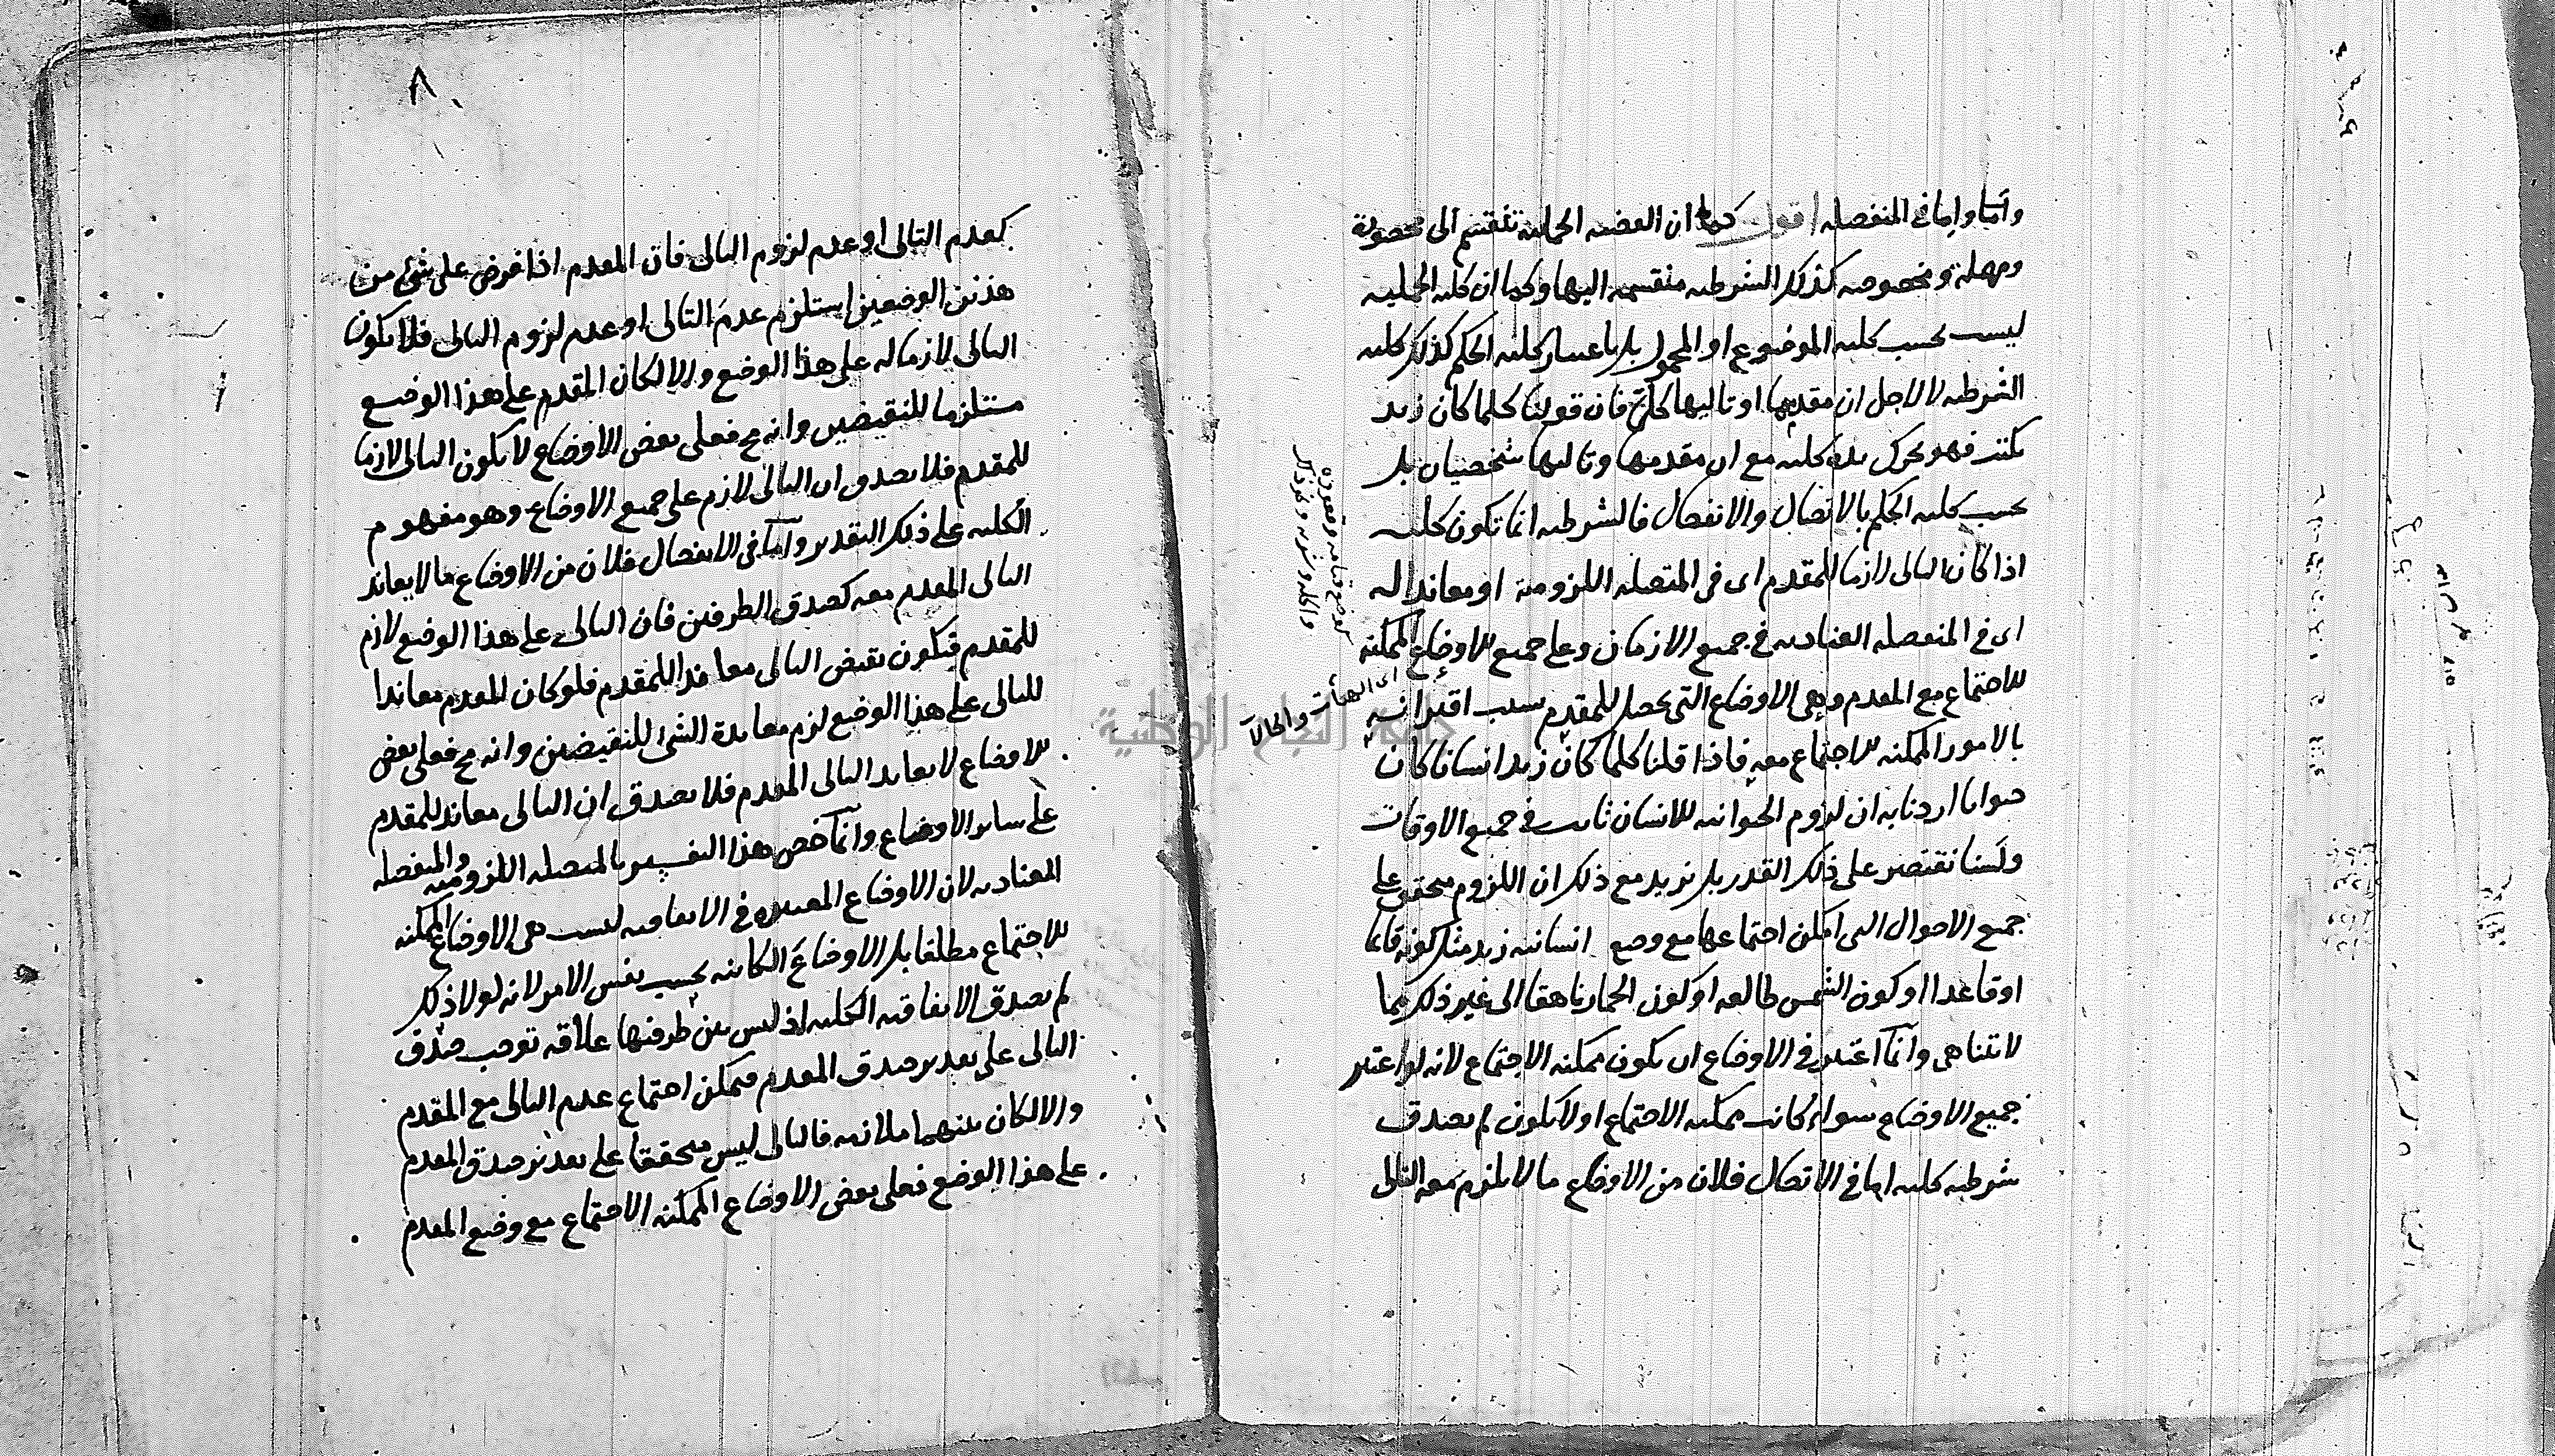 وأما واما في المنفصله اقول كما ان القضيه الحمليه تنقسم الى محصورة
ومهملة ومخصوصه كذلك الشرطيه منقسمه اليها وكما ان كليه الحمليه
ليست بحسب كليه الموضوع او المحمول بل باعتبار كليه الحكم كذلك كليه
الشرطيه لا لاجل ان مقدمها او تاليها كلى فان قولنا كلما كان زيد
يكتب فهو يحرك يده كليه مع ان مقدمها وتاليها شخصيتان بل
بحسب كليه الحكم بالاتصال والانفصال فالشرطيه انما تكون كليه
اذا كان التالى لازما للمقدم اى فى المتصله اللزومية او معاندا له
اى فى المنفصله العناديه فى جميع الازمان وعلى جميع الاوضاع الممكنه
للاجتماع مع المقدم وهى الاوضاع التى يحصل للمقدم بسبب اقترانه
بالامور الممكنه الاجتماع معه فاذا قلنا كلما كان زيد انسانا كان
حيوانا اردنا به ان لزوم الحيوانيه للانسان ثابت فى جميع الاوقات
ولسنا نقتصر على ذلك القدر بل نريد مع ذلك ان اللزوم متحقق على
جميع الاحوال التى امكن اجتماعها مع وضع انسانيه زيد مثل كونه قائما
او قاعدا او كون الشمس طالعه او كون الحمار ناهقا الى غير ذلك مما
لا تتناهى وانما اعتبر فى الاوضاع ان يكون ممكنه الاجتماع لانه لو اعتبر
جميع الاوضاع سواء كانت ممكنه الاجتماع او لا يكون لم يصدق
شرطيه كليه اما فى الاتصال فلان من الاوضاع ما لا يلزم معه التالى
كوضع قيامه وقعوده
واكله وشربه ونحو ذلك
اى الهيئات والحالات
جامعة النجاح الوطنية
٨
كعدم التالى او عدم لزوم التالى فان المقدم اذا فرض على شئ من
هذين الوضعين استلزم عدم التالى او عدم لزوم التالى فلا يكون
التالى لازما له على هذا الوضع والا لكان المقدم على هذا الوضع
مستلزما للنقيضين وانه مح فعلى بعض الاوضاع لا يكون التالى لازما
للمقدم فلا يصدق ان التالى لازم على جميع الاوضاع وهو مفهوم
الكليه على ذلك التقدير واما فى الانفصال فلان من الاوضاع ما لا يعاند
التالى المقدم معه كصدق الطرفين فان التالى على هذا الوضع لازم
للمقدم فيكون نقيض التالى معاندا للمقدم فلو كان المقدم معاندا
للتالى على هذا الوضع لزم معاندة الشئ للنقيضين وانه مح فعلى بعض
الاوضاع لا يعاند التالى المقدم فلا يصدق ان التالى معاند للمقدم
على ساير الاوضاع وانما خص هذا التفسير بالمتصله اللزوميه والمنفصله
العناديه لان الاوضاع المعتبره فى الاتفاقيه ليست هى الاوضاع الممكنه
الاجتماع مطلقا بل الاوضاع الكائنه بحسب نفس الامر لانه لولا ذلك
لم يصدق الاتفاقيه الكليه اذ ليس بين طرفيها علاقه توجب صدق
التالى على تقدير صدق المقدم فيمكن اجتماع عدم التالى مع المقدم
والا لكان بينهما ملازمه فالتالى ليس متحققا على تقدير صدق المقدم
على هذا الوضع فعلى بعض الاوضاع الممكنه الاجتماع مع وضع المقدم